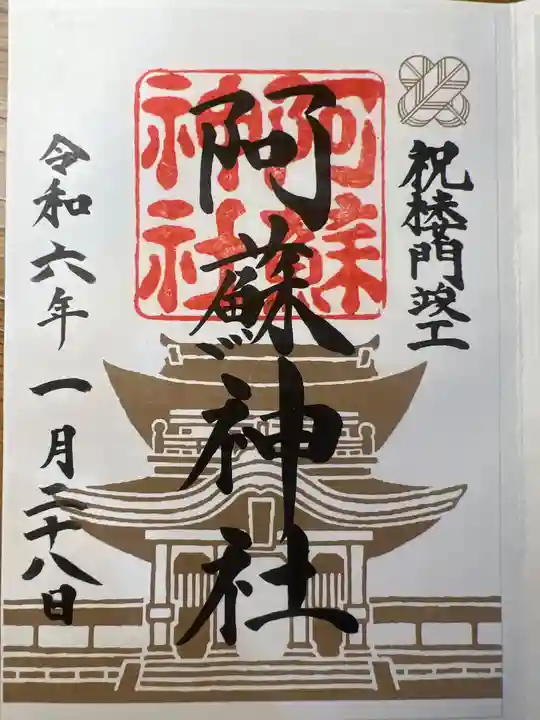 祝楼門竣工
阿蘇神社
阿蘇
神社
令和六年一月二十八日